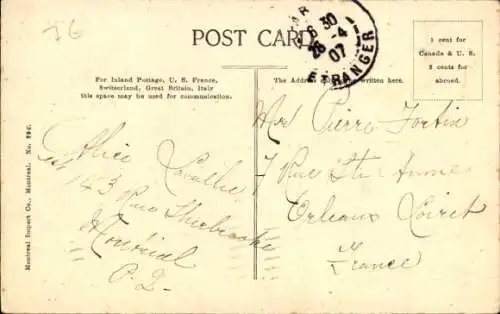 76
POST CARD
6 30
26 - 4
07
ETRANGER
1 cent for
Canada & U. S.
2 cents for
abroad.
For Inland Postage, U. S. France,
Switzerland, Great Britain, Italy
this space may be used for communication.
The Address written here.
Montreal Import Co., Montreal. No. 294.
Alice Lavallée
143 Rue Sherbrooke
Montréal
P. Q.
Pierre Fortin
7 Rue Ste Anne
Orleans Loiret
France